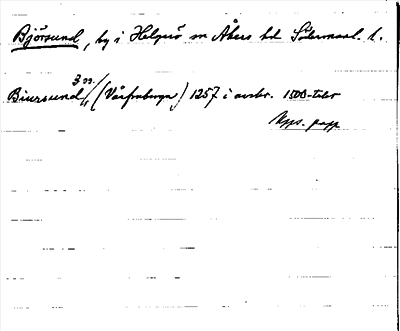 Björsund, by i Helgarö sn Åkers hd Södermanl. l.
3 ggr.
Biursund // (Vårfruberga) 1257 i avskr. 1500-talet
Upps. papp